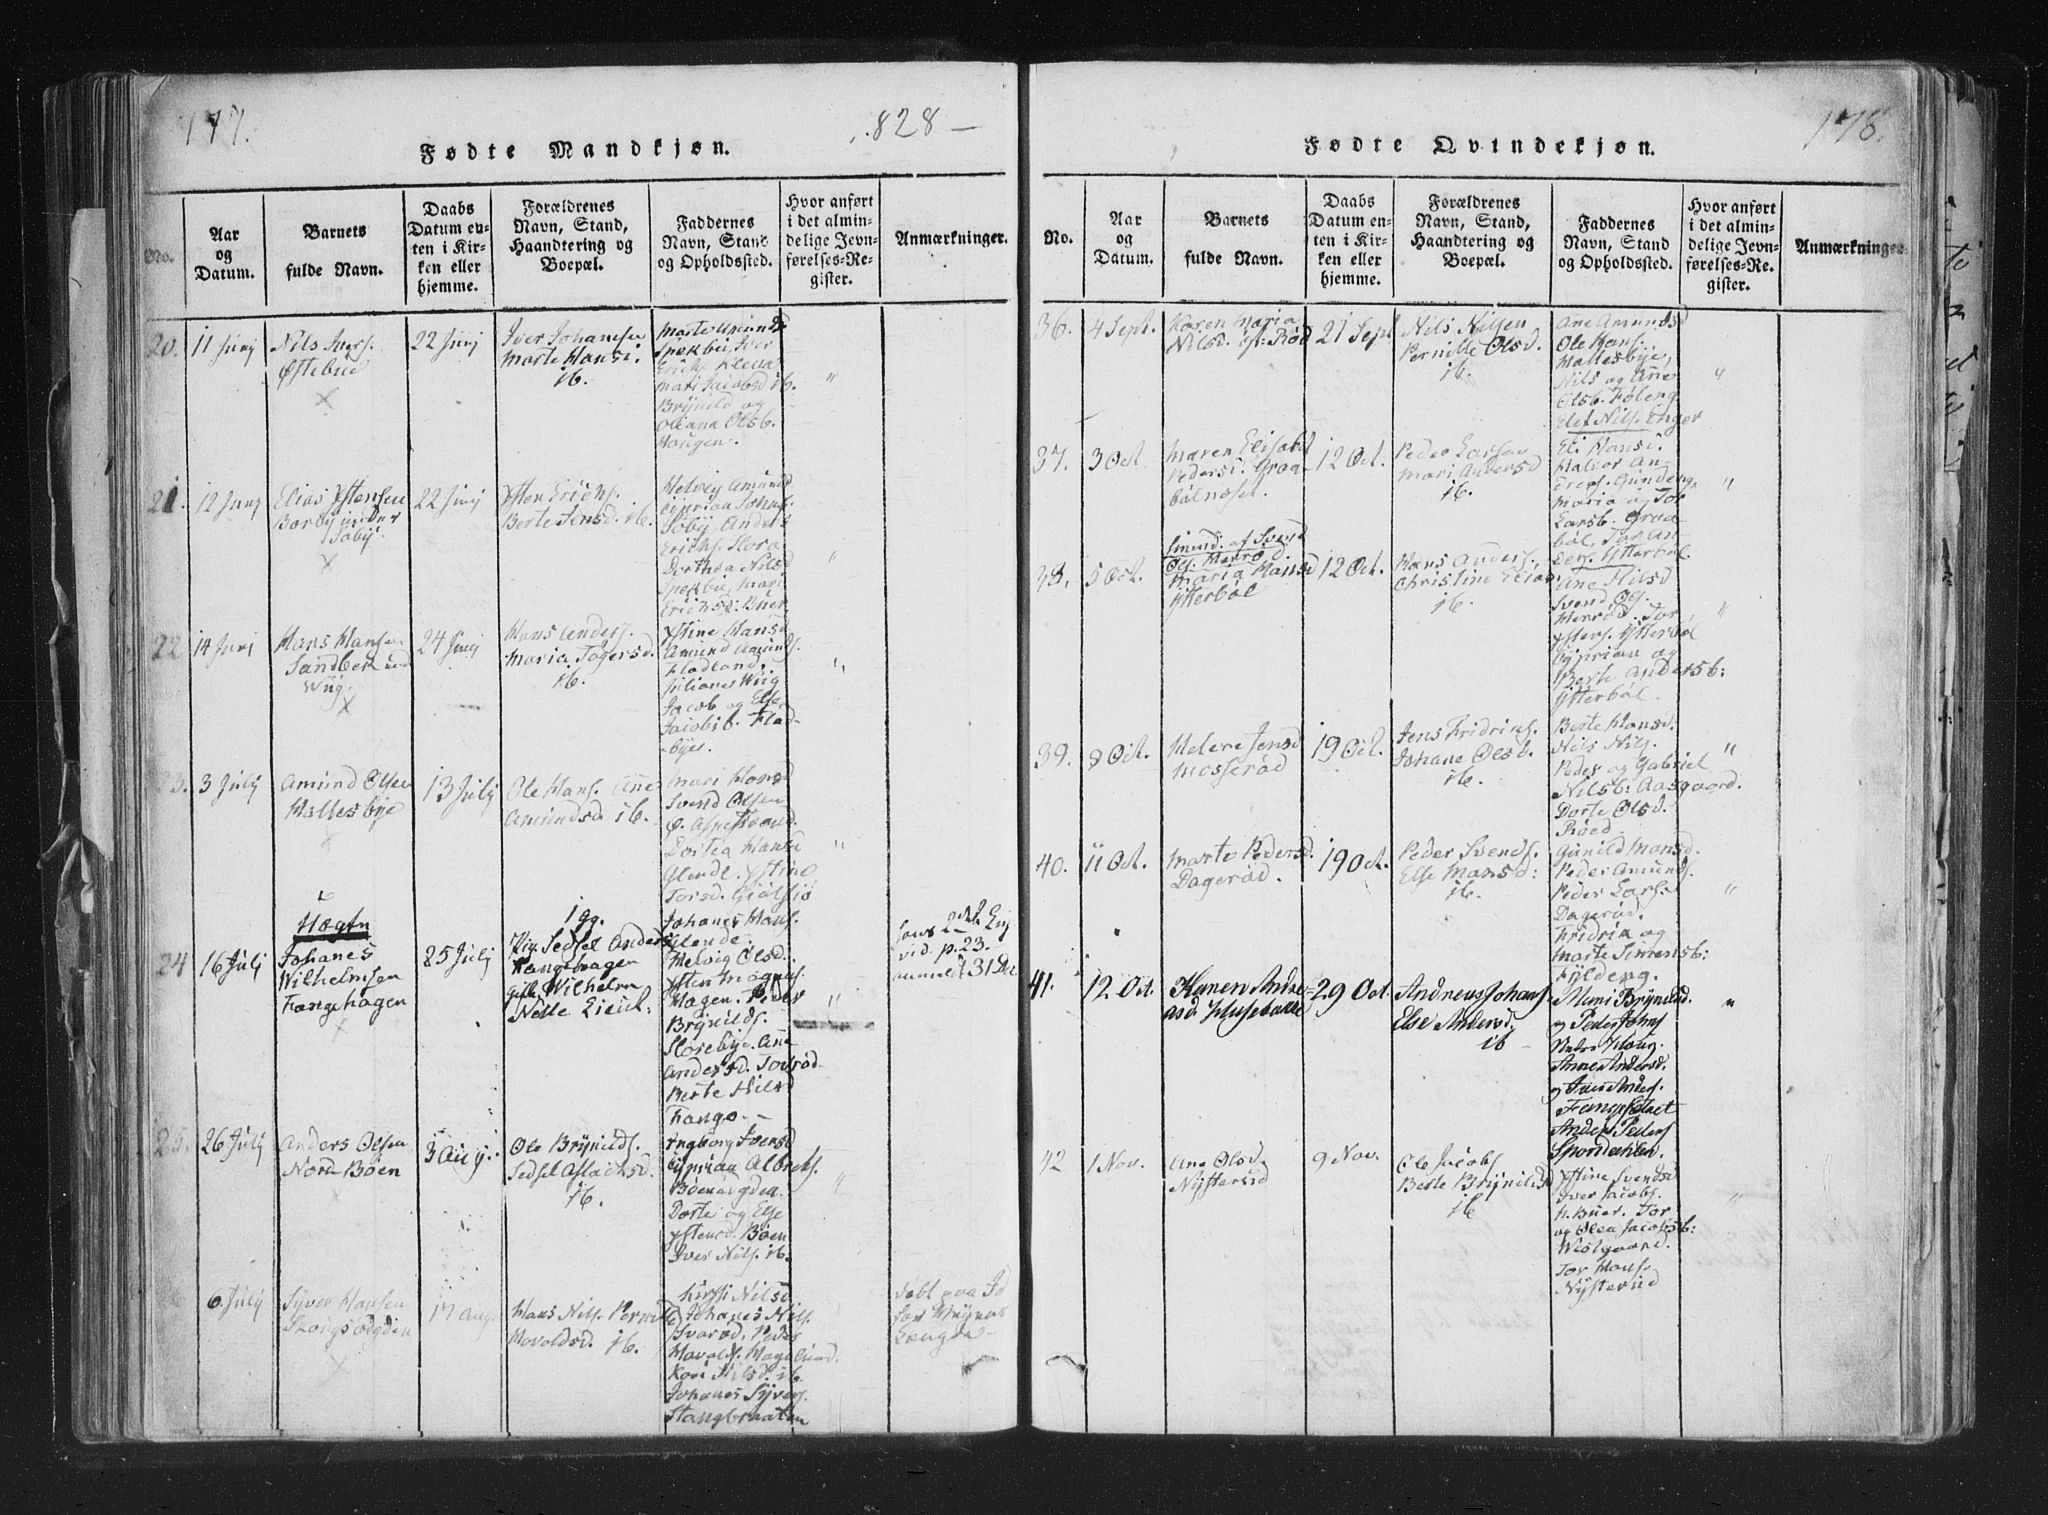 177.
1828 —
Fødte Mandkjøn.
No.
Aar
og
Datum.
Barnets
fulde Navn.
Daabs
Datum en-
ten i Kir-
ken eller
hjemme.
Forældrenes
Navn, Stand,
Haandtering og
Boepæl.
Faddernes
Navn, Stand
og Opholdssted.
Hvor anført
i det almin-
delige Jevn-
førelses-Re-
gister.
Anmærkninger.
20.
11 Junj
Nils Ivers.
Østebue
22 Junj
Iver Johansen
Marte Hansd.
ib.
Marte Amunds
Spekbu, Iver
Erichs.
Mari Jacobsd ib.
Brynild og
Oleana Olsb.
Haugen.
"
21.
12 Junj
Elias Ystensen
Borby under
Søby.
22 Junj
Ysten Erichs.
Berte Jensd. ib.
Helvig Amund
Ciprian Johns.
Søby, Anders
Erichs. Slora
Dorthea Nilsd
Spekbu, Mari
Erichsd. Buer.
"
22
14 Junj
Hans Hansen
Sandbek und
Wiig.
24 Junj
Hans Anders.
Maria Togersd.
ib.
Ystine Hansd
Amund Amunds.
Fladland,
Juliane Wiig
Jacob og Else
Jacobsb. Flad-
byes.
"
23.
3 Julj
Amund Olsen
Hallesbye
13 Julj
Ole Hans. Ane
Amundsd ib.
Mari Hansd
Svend Olsen
Ø. Aspestrand.
Dortea Hansd
Glende. Ystine
Torsd.
"
24
16 Julj
Uægte
Johanes
Wilhelmsen
Fangehagen
25 Julj
igg.
Pig. Sedsel Anders
Fangehagen
Gift Wilhelm
Johanes Hans.
Glende.
Helvig Olsd.
Ysten Magnus.
Hagen. Peder
Brynilds.
Slorebye. Ane
Andersd. Torsrød
Berte Nilsd
Fange. —
"
hans 2det
vid. p. 23.
anmeldt 31 Dec
25.
26 Julj
Anders Olsen
Nordre Bøen
3 Aug.
Ole Brynilds.
Sedsel Aslachsd.
ib.
Ingborg Svensd
Ciprian Albrets.
Bøensigden.
Dorte og Else
Ystensd. Bøen
Iver Nils. ib.
"
6 Julj
Syver Hansen
Skougsøigden
17 Aug.
Hans Nils. Pernille
Havoldsd. ib.
Kirsti Nilsd
Johanes Nils.
Svarød, Peder
Havolds. Hagelund.
Kari Nilsd. ib.
Johanes Syvers.
Stangbraaten
døbt paa Id
for
178.
Fødte Qvindekjøn.
No.
Aar
og
Datum.
Barnets
fulde Navn.
Daabs
Datum en-
ten i Kir-
ken eller
hjemme.
Forældrenes
Navn, Stand,
Haandtering og
Boepæl.
Faddernes
Navn, Stand
og Opholdssted.
Hvor anført
i det almin-
delige Jevn-
førelses-Re-
gister.
Anmærkninger.
36.
4 Sept.
Karen Maria
Nilsd. Rød
21 Sept
Nils Nilsen
Pernille Olsd.
ib.
Ane Amundsd
Ole Hans.
Hallesbye,
Nils og Ane
Olsb.
Elef Nils. Enger
"
37.
3 Oct
Maren Elisabet
Pedersd. Graa-
bølnøset.
12 Oct.
Peder Larsen
Mari Andersd
ib.
Eli Hansd.
Halvor An-
Maria og Tor
Larsb. Graa-
bøl, Tor An-
ders. Ytterbøl
"
38.
5 Oct.
Maria Hansd
Ytterbøl
12 Oct.
Hans Anders.,
Christine Eliad.
ib.
Ane Nilsd
Svend Ols.
Henrød. Tor
Ystens. Ytterbøl
Ciprian og
Berte Andersb:
Ytterbøl.
"
39.
8 Oct.
Helene Jensd
Mosserød
19 Oct.
Jens Fridrichs.
Johane Olsd.
ib.
Berte Hansd.
Nils Nils.
Peder og Gabriel
Nilsb: Aasgaard.
Dorte Olsd.
Røed.
"
40.
11 Oct.
Marte Pedersd.
Dagerød.
19 Oct.
Peder Svends.
Else Hansd:
ib.
Gunild Hansd.
Peder Amunds.
Peder Lars.
Dagerød.
Fridrik og
Marte Simensb:
"
41.
12 Oct.
Karen Andre-
asd. Husebakke
29 Oct.
Andreas Johans.
Else Andersd.
ib —
Mari Brynilsd.
og Peder Johns
Anne Andersd.
og Iver Anders.
Anders Peders
Sponvichlen.
"
42
1 Nov.
Ane Olsd.
Nysterud
9 Nov.
Ole Jacobs
Berte Brynildsd
ib
Ystine Svendsd
Iver Jacobs.
N. Buer. Tor
og Olea Jacobsb:
Westgaard.
Tor Hans.
Nysterud
"